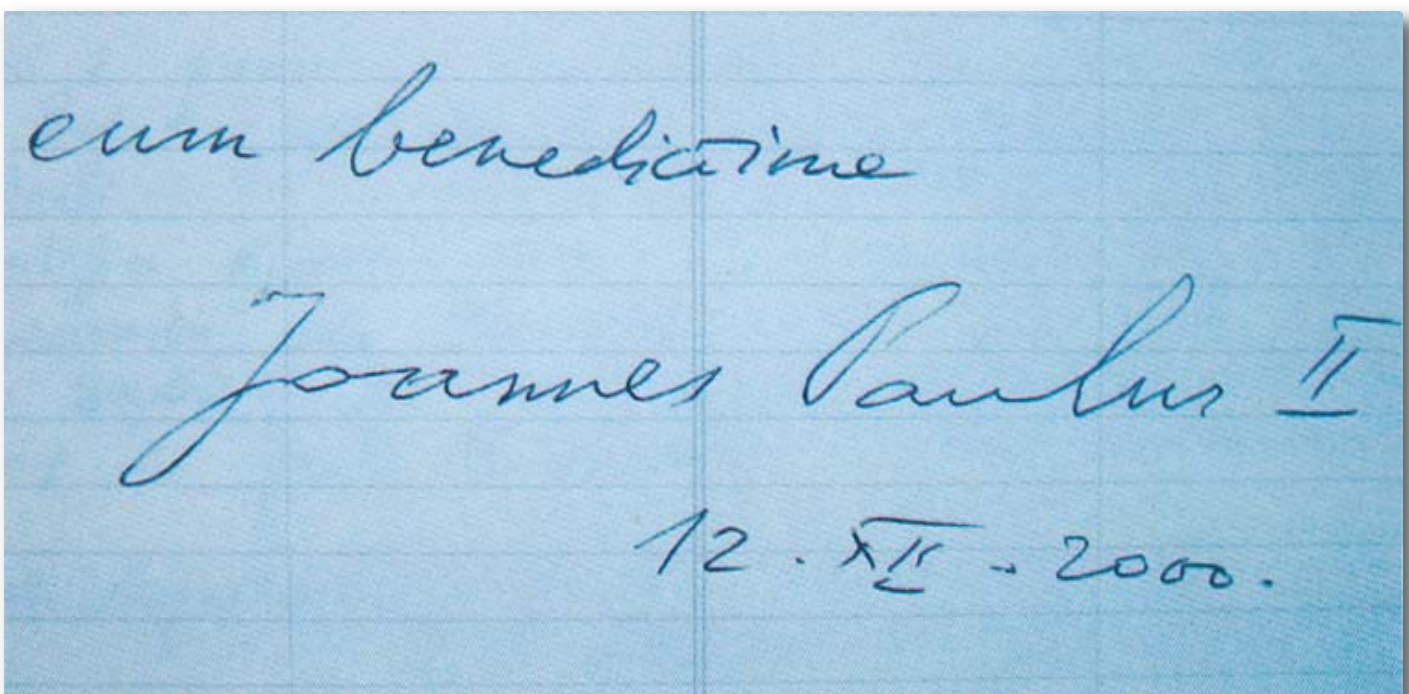 cum benedictione
Joannes Paulus II
12. XII. 2000.